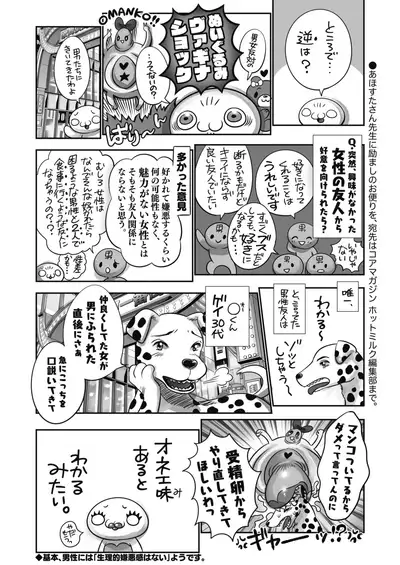 ところで…
逆は？
男女反対の
…てないの？
ぬいぐるみ
ヴァギナ
ショック
MANKO!!
ばりーっ
男たちに
きいてきたわよ
Q.突然、興味がなかった
女性の友人から
好意を向けられたら？
好きになって
くれることは
うれしいです
断るかもだけど
キライにならず
良い友人でいたい。
すっごくブスだと
しても好きに
なるかも…
多かった意見
好かれて嫌悪するくらい
何の可能性もなく
魅力がない女性とは
そもそも友人関係に
ならないと思う。
むしろ女性は
なんとも思ってない
男性と2人で
食事に行ったり
しちゃうの？？
唯一、
わかる〜
ゾッと
しちゃう。
と、言ってた
男性友人は
〇くん
ゲイ30代
仲良くしてた女が
男にふられた
直後にさぁ
急にこっちを
口説いてきて
マンコついてるから
ダメって言ってんのに
ッ!?
受精卵から
やり直してきて
ほしいわっ
ギャー
オネエ味
み
あると
わかる
みたい。
◆基本、男性には「生理的嫌悪感はない」ようです。
●あほすたさん先生に励ましのお便りを、宛先はコアマガジン ホットミルク編集部まで。